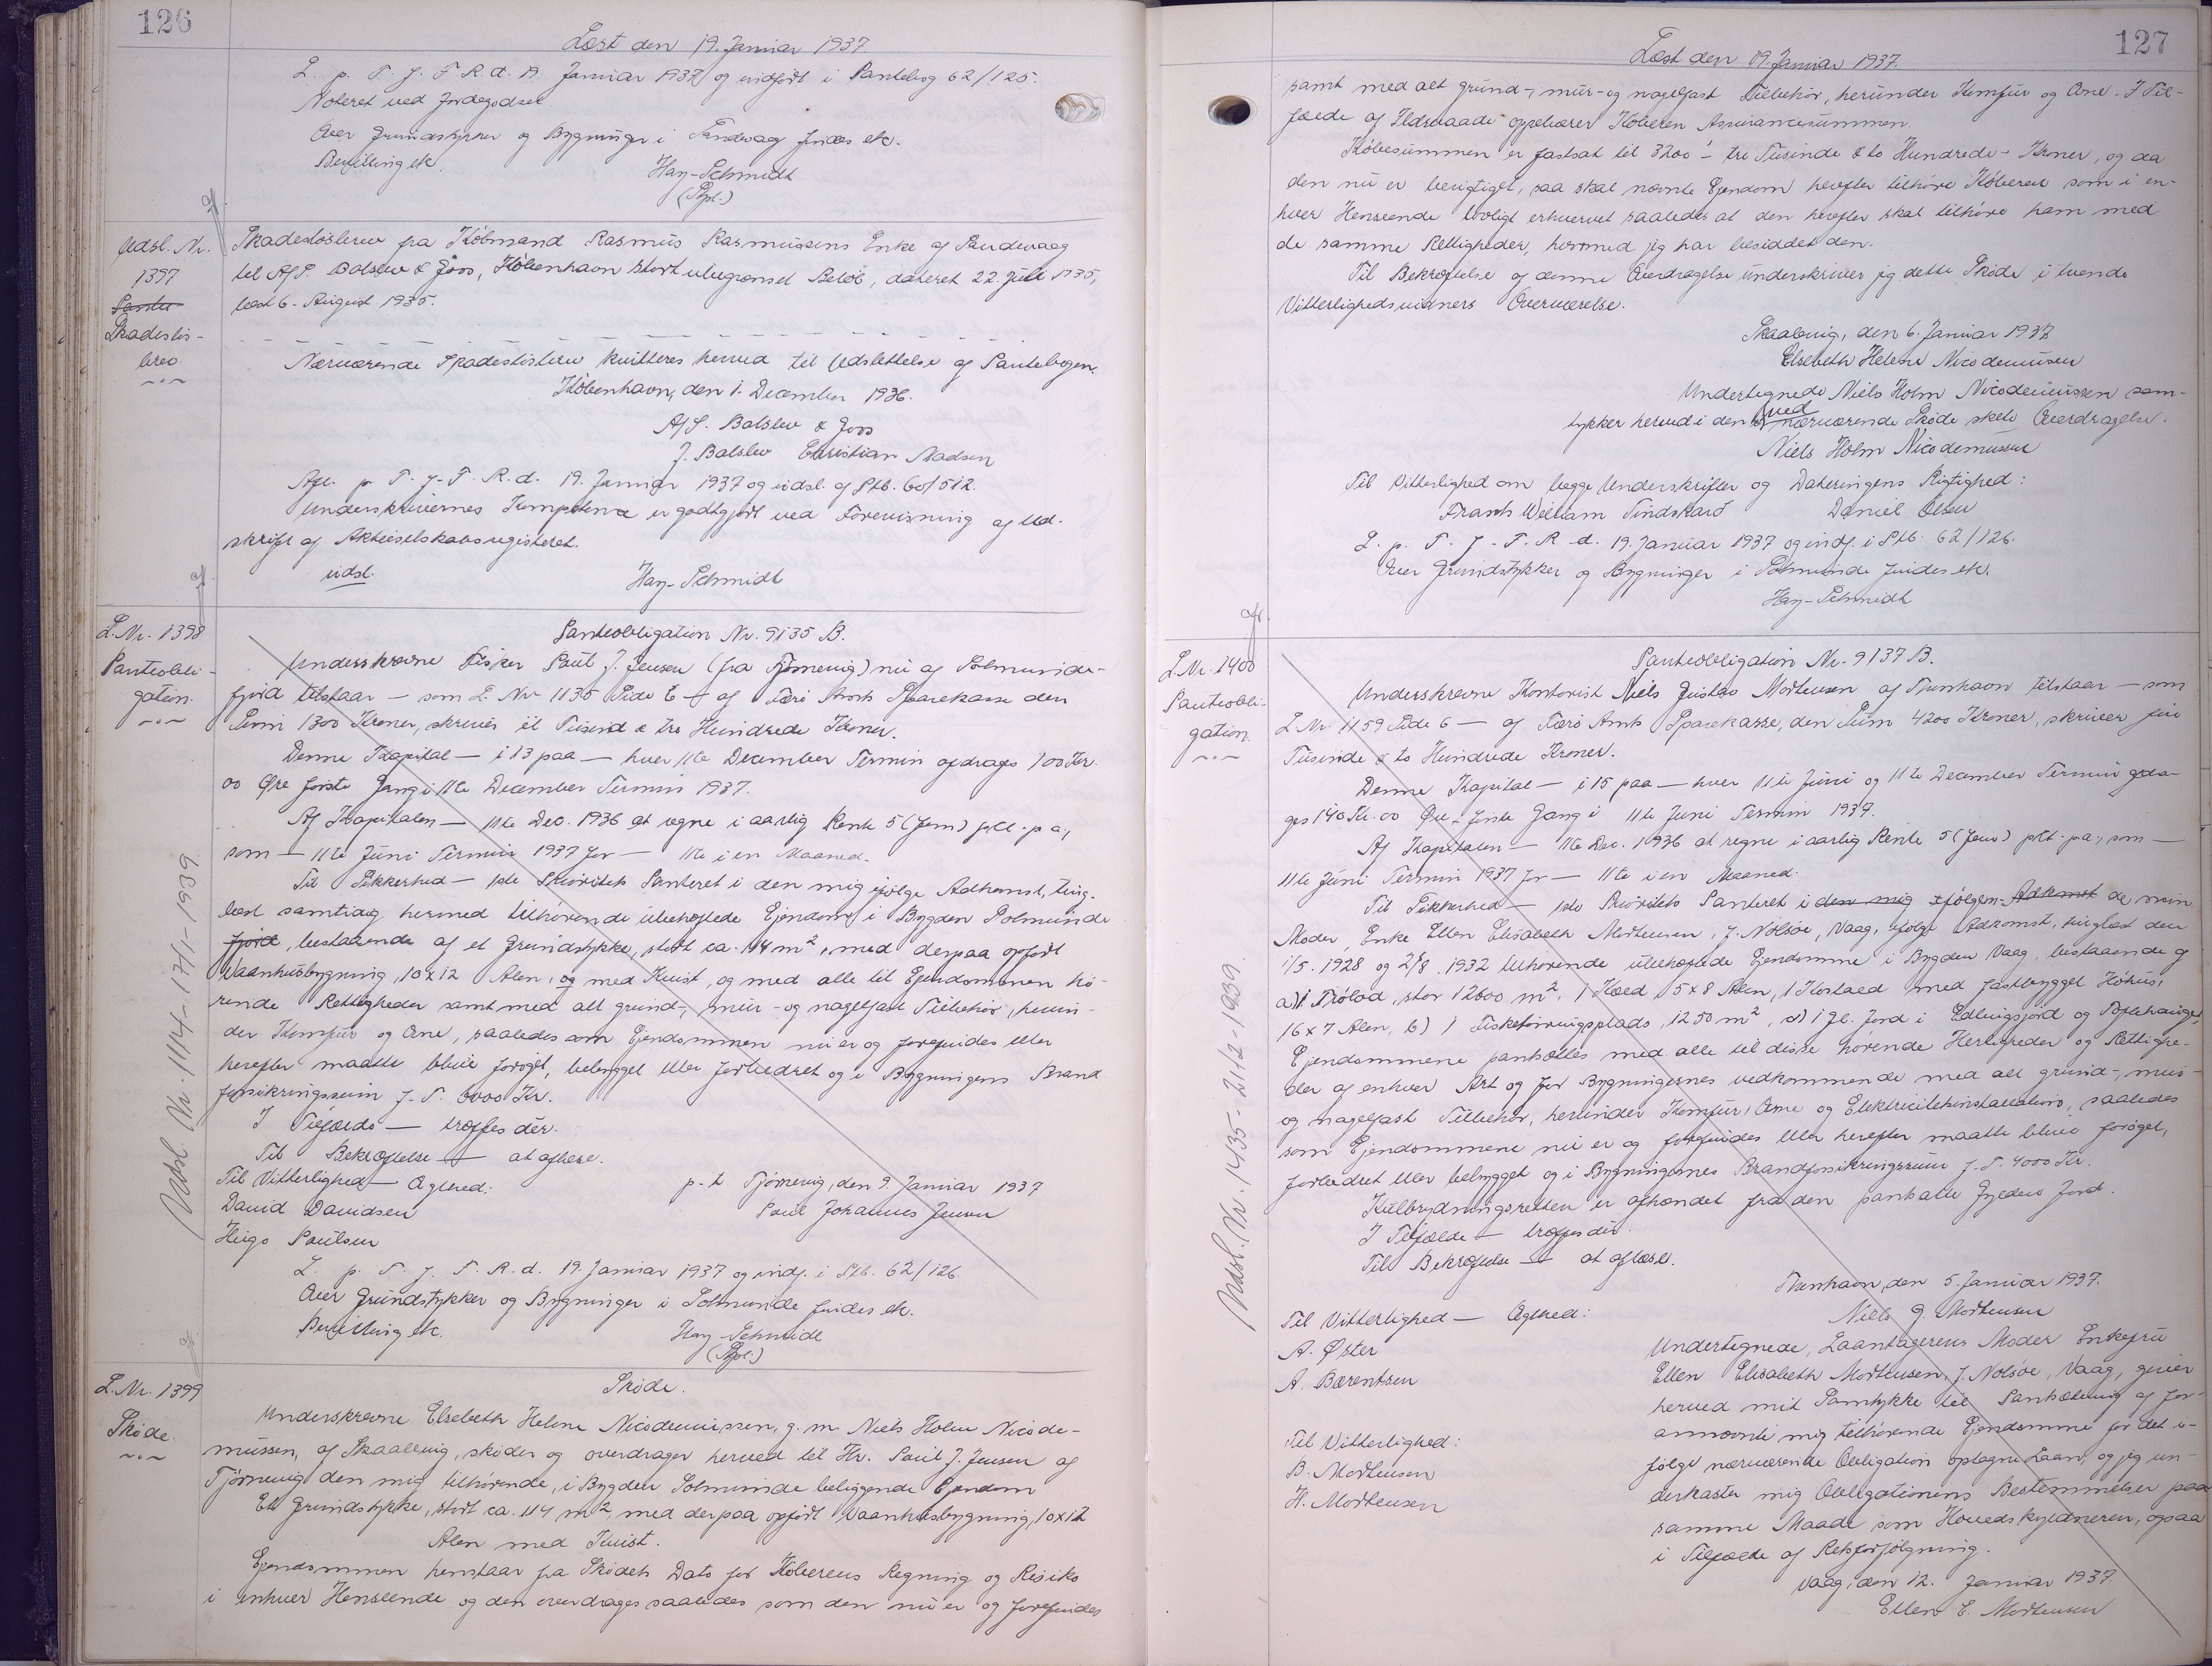 126
Læst den 19. Januar 1937.
L. p. T. f. F. R. d. 19. Januar 1937 og indført i Pantebog 62/125.
Noteret ved Jordegodset
Over Grundstykker og Bygninger i Sandvaag findes ek.
Bevilling ek.
Hay-Schmidt
(Bpl.)
Udsl. Nr.
1397
Skadesløs-
brev
Skadesløsbrev fra Købmand Rasmus Rasmussens Enke af Sandevaag
til A/S. Balslev & Joos, København stort ubegrænset Beløb, dateret 22. Juli 1935,
læst 6. August 1935.
Nærværende Skadesløsbrev kvitteres herved til Udslettelse af Pantebogen.
København, den 1. December 1936.
A/S. Balslev & Joos
J. Balslev Christian Madsen
Afl. p. T. f. F. R. d. 19. Januar 1937 og udsl. af Ptb. 60/512.
Underskrivernes Kompetence er godtgjort ved Forevisning af Ud-
skrift af Aktieselskabsregisteret.
udsl.
Hay-Schmidt
L. Nr. 1398
Panteobli-
gation.
Udsl. Nr. 1114-17/1-1939.
Panteobligation Nr. 9135 B.
Underskrevne Fisker Poul J. Jensen (fra Tjørnevig) nu af Solmunde-
fjord tilstaar — som L. Nr. 1135 Side 6 — af Færø Amts Sparekasse den
Sum 1300 Kroner, skriver et Tusind & tre Hundrede Kroner.
Denne Kapital — i 13 paa — hver 11te December Termin afdrages 100 Kr.
00 Øre første Gang i 11te December Termin 1937.
Af Kapitalen — 11te Dec. 1936 at regne i aarlig Rente 5 (fem) pCt. p a.,
som — 11te Juni Termin 1937 for — 11te i en Maaned.
Til Sikkerhed — 1ste Prioritets Panteret i den mig ifølge Adkomst, ting-
læst samtidig hermed tilhørende ubehæftede Ejendom i Bygden Solmunde
fjord, bestaaende af et Grundstykke, stort ca. 114 m², med derpaa opført
Vaanhusbygning, 10 x 12 Alen, og med Kvist, og med alle til Ejendommen hø-
rende Rettigheder samt med alt grund-, mur- og nagelfast Tilbehør, herun-
der Komfur og Ovne, saaledes som Ejendommen nu er og forefindes eller
herefter maatte blive forøget, bebygget eller forbedret og i Bygningens Brand
forsikringssum f. T. 6000 Kr.
I Tilfælde — træffes dér.
Til Bekræftelse — at aflæse.
Til Vitterlighed — Ægthed:
David Davidsen
Hugo Poulsen
p. t. Tjørnevig, den 9. Januar 1937
Poul Johannes Jensen
L. p. T. f. F. R. d. 19. Januar 1937 og indf. i Ptb. 62/126.
Over Grundstykker og Bygninger i Solmunde findes ek.
Bevilling ek.
Hay-Schmidt
(Bpl.)
L. Nr. 1399
Skøde.
Skøde.
Underskrevne Elsebeth Helene Nicodemussen, g. m. Niels Holm Nicode-
mussen, af Skaalevig, skøder og overdrager herved til Hr. Poul J. Jensen af
Tjørnevig den mig tilhørende, i Bygden Solmunde beliggende Ejendom
Et Grundstykke, stort ca. 114 m², med derpaa opført Vaanhusbygning, 10x12
Alen med Kvist.
Ejendommen henstaar fra Skødets Dato for Køberens Regning og Risiko
i enhver Henseende og den overdrages saaledes som den nu er og forefindes
127
Læst den 19. Januar 1937.
samt med alt grund-, mur- og nagelfast Tilbehør, herunder Komfur og Ovne. I Til-
fælde af Ildsvaade oppebærer Køberen Assurancesummen.
Købesummen er fastsat til 3200 - tre Tusinde & to Hundrede - Kroner, og da
den nu er berigtiget, saa skal nævnte Ejendom herefter tilhøre Køberen som i en-
hver Henseende lovligt erhvervet saaledes at den herefter skal tilhøre ham med
de samme Rettigheder, hvormed jeg har besiddet den.
Til Bekræftelse af denne Overdragelse underskriver jeg dette Skøde i tvende
Vitterlighedsvidners Overværelse.
Skaalevig, den 6. Januar 1937
Elsebeth Helene Nicodemussen
Undertegnede Niels Holm Nicodemussen sam-
tykker herved i den ved nærværende Skøde skete Overdragelse.
Niels Holm Nicodemussen
Til Vitterlighed om begge Underskrifter og Dateringens Rigtighed:
Frants William Tindskard Daniel Olsen
L. p. T. f. F. R. d. 19. Januar 1937 og indf. i Ptb. 62/126.
Over Grundstykker og Bygninger i Solmunde findes ek.
Hay-Schmidt
L. Nr. 1400
Panteobli-
gation.
Udsl. Nr. 1435-21/2-1939.
Panteobligation Nr. 9137 B.
Underskrevne Kontorist Niels Gustav Mortensen af Thorshavn tilstaar — som
L. Nr. 1159 Side 6 — af Færø Amts Sparekasse, den Sum 4200 Kroner, skriver fire
Tusinde & to Hundrede Kroner.
Denne Kapital — i 15 paa — hver 11te Juni og 11te December Termin afdra-
ges 140 Kr. 00 Øre — første Gang i 11te Juni Termin 1937.
Af Kapitalen — 11te Dec. 1936 at regne i aarlig Rente 5 (fem) pCt. pa., som —
11te Juni Termin 1937 for — 11te i en Maaned.
Til Sikkerhed — 1ste Prioritets Panteret i den mig ifølgen Adkomst de min
Moder, Enke Ellen Elisabeth Mortensen, f. Nolsøe, Vaag, ifølge Adkomst, tinglæst den
1/5. 1928 og 2/8. 1932 tilhørende ubehæftede Ejendomme i Bygden Vaag, bestaaende af
16 x 7 Alen, b) 1 Fisketørringsplads, 1250 m²,
Ejendommene panthæftes med alle til disse hørende Herligheder og Rettighe-
der af enhver Art og for Bygningernes vedkommende med alt grund-, mur-
og nagelfast Tilbehør, herunder Komfur, Ovne og Elektricitetsinstallation, saaledes
som Ejendommene nu er og forefindes eller herefter maatte blive forøget,
forbedret eller bebygget og i Bygningernes Brandforsikringssum f. T. 4000 Kr.
Kulbrydningsretten er afhændet fra den pantsatte Gyldens Jord.
I Tilfælde — træffes dér.
Til Bekræftelse — at aflæse.
Thorshavn, den 5. Januar 1937.
Niels G. Mortensen
Til Vitterlighed — Ægthed:
A. Øster
A. Bærentsen
Undertegnede, Laantagerens Moder Enkefru
Ellen Elisabeth Mortensen, f. Nolsøe, Vaag, giver
herved mit Samtykke til Pantsætning af for-
annævnte mig tilhørende Ejendomme for det i-
følge nærværende Obligation optagne Laan, og jeg un-
derkaster mig Obligationens Bestemmelser paa
samme Maade som Hovedskyldneren, ogsaa
i Tilfælde af Retsforfølgning.
Vaag, den 12. Januar 1937.
Ellen E. Mortensen
Til Vitterlighed:
B. Mortensen
H. Mortensen